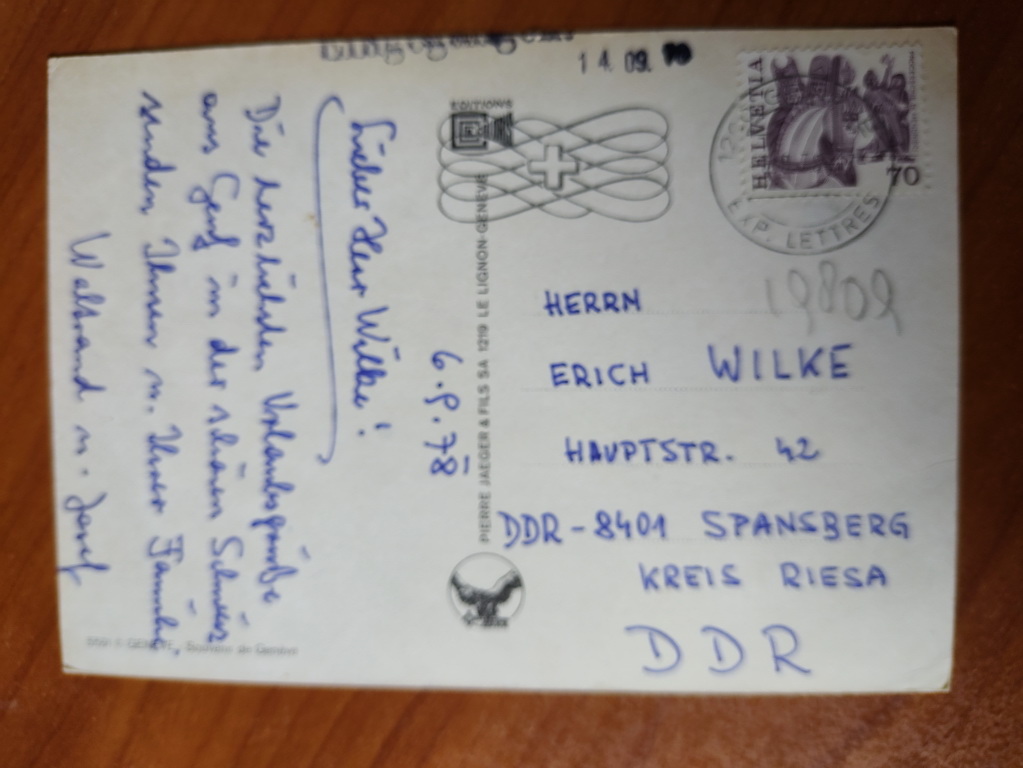 6.9.78
Lieber Herr Wilke!
Die herzlichsten Urlaubsgrüße
aus Genf in der schönen Schweiz
senden Ihnen u. Ihrer Familie,
Waltraud u. Josef
GENEVE,
EDITIONS
PIERRE JAEGER & FILS SA 1219 LE LIGNON-GENEVE
14.09.
HELVETIA
70
EXP. LETTRES
19809
HERRN
ERICH WILKE
HAUPTSTR. 42
DDR-8401 SPANSBERG
KREIS RIESA
DDR